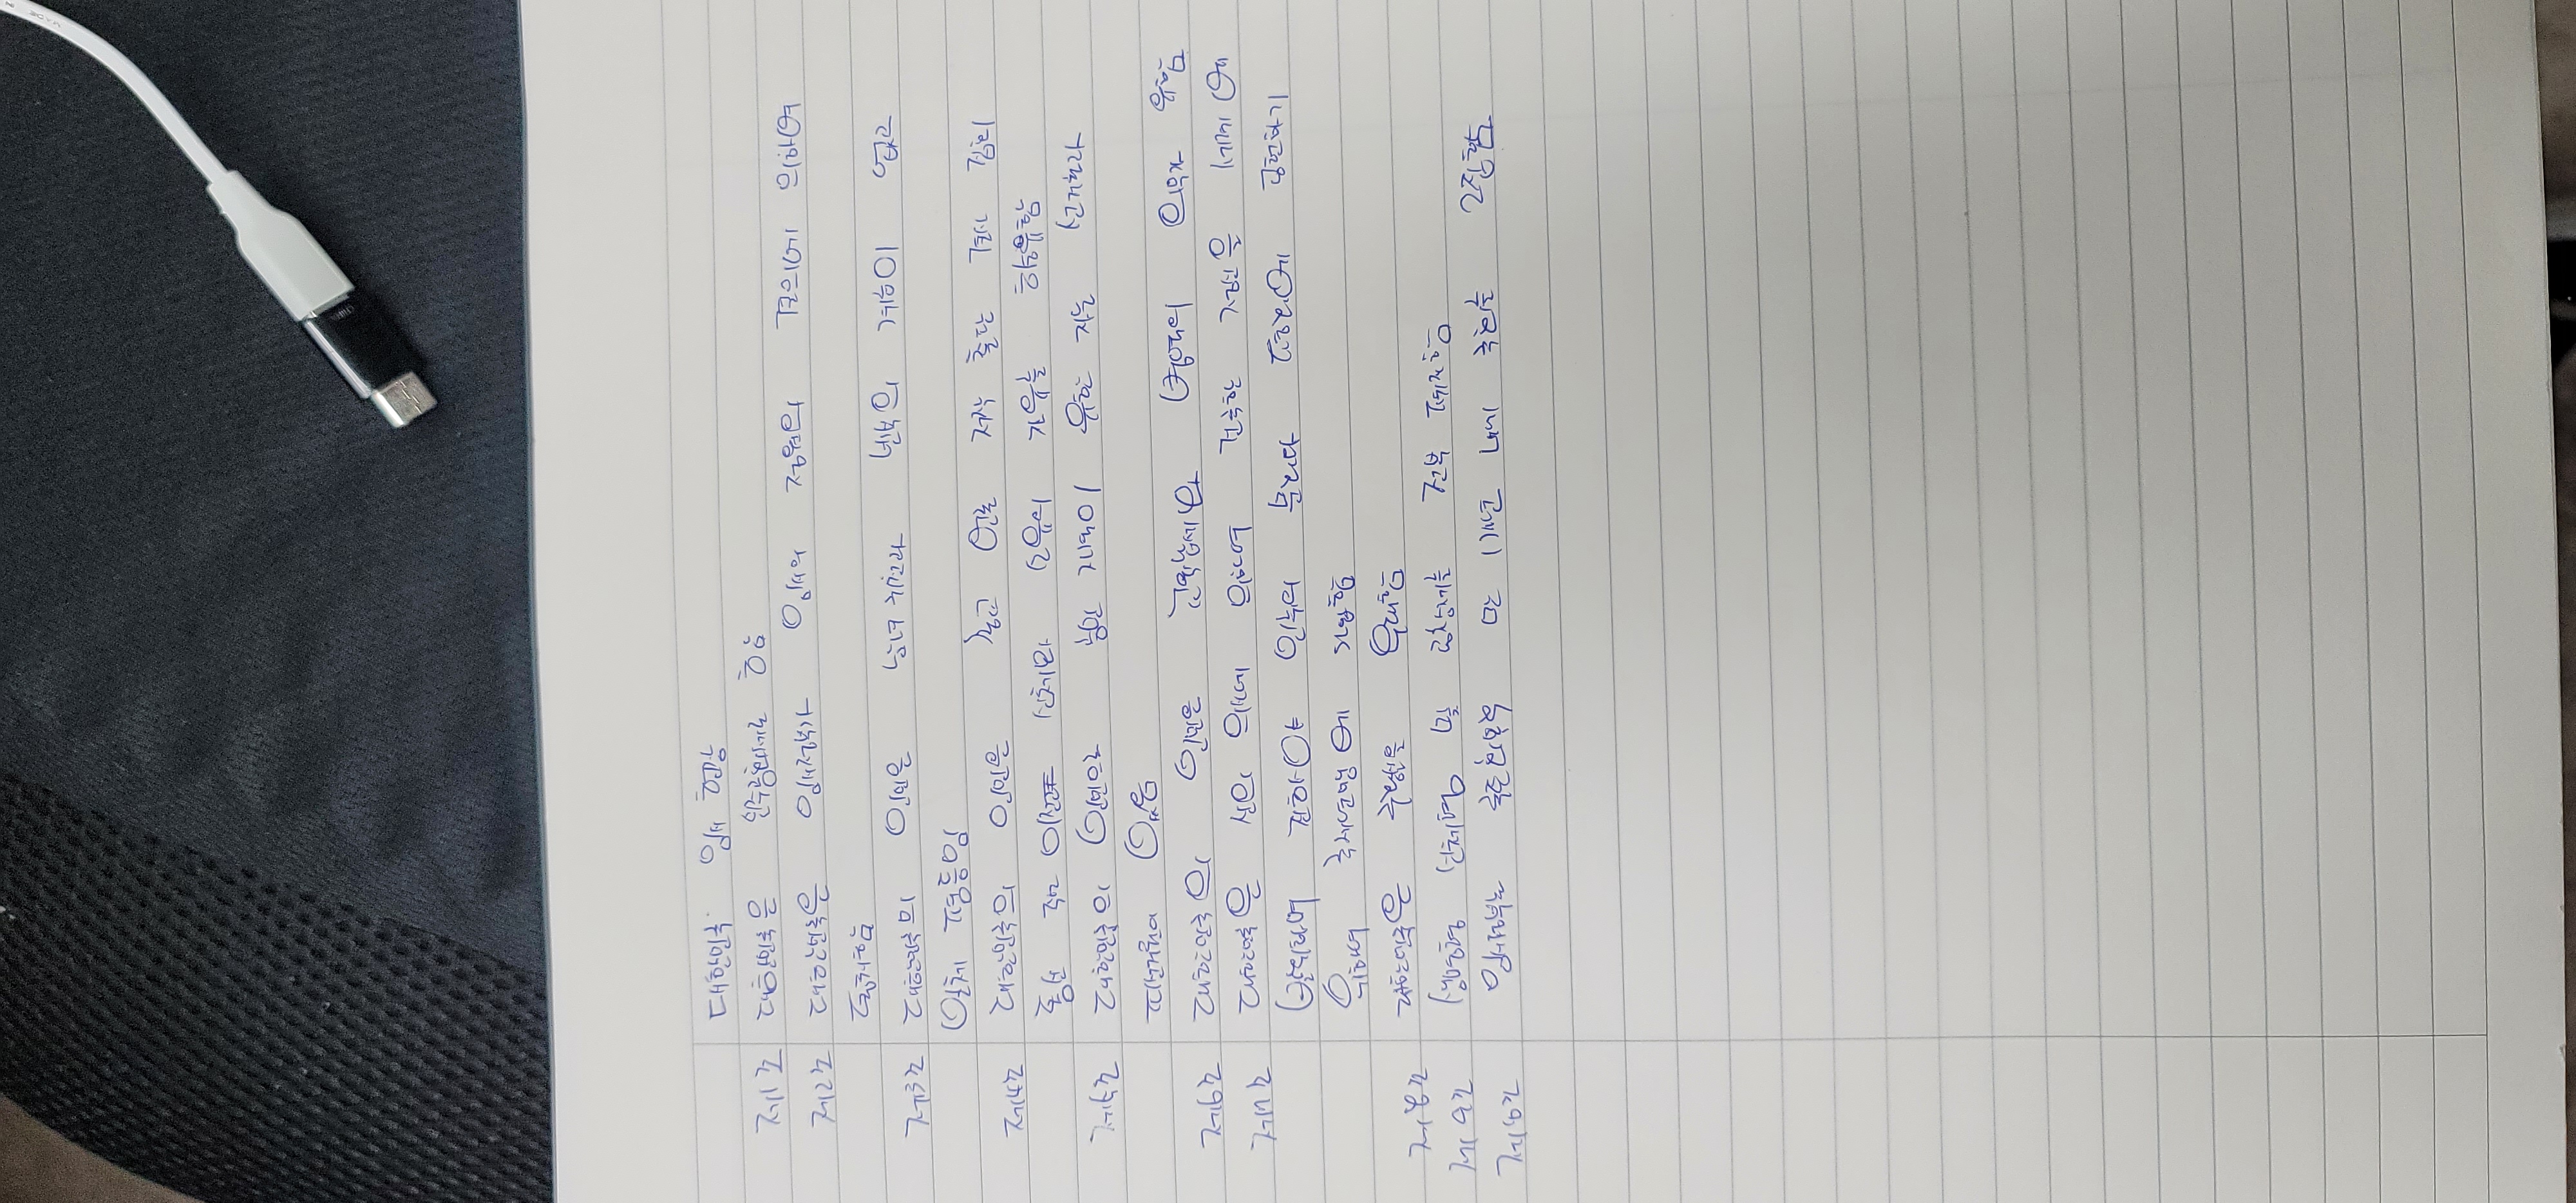 대한민국 임시 헌장
제1조 대한민국은 민주공화제로 함
제2조 대한민국은 임시정부가 임시의정원의 결의에 의하여
통치함
제3조 대한민국의 인민은 남녀 귀천과 빈부의 계급이 없고
일체 평등임
제4조 대한민국의 인민은 종교 언론 저작 출판 결사 집회
통신 주소 이전 신체와 소유의 자유를 향유함
제5조 대한민국의 인민으로 공민 자격이 유한 자는 선거권과
피선거권이 있음
제6조 대한민국의 인민은 교육 납세와 병역의 의무가 유함
제7조 대한민국은 신의 의사에 의하여 건국한 정신을 세계에
발휘하며 인류의 문화와 평화에 공헌하기
위하여 국제연맹에 가입함
제8조 대한민국은 구황실을 우대함
제9조 생명형 신체형 및 공창제를 전부 폐지함
임시정부는 국토회복 후 만 1개년 내에 국회를 소집함